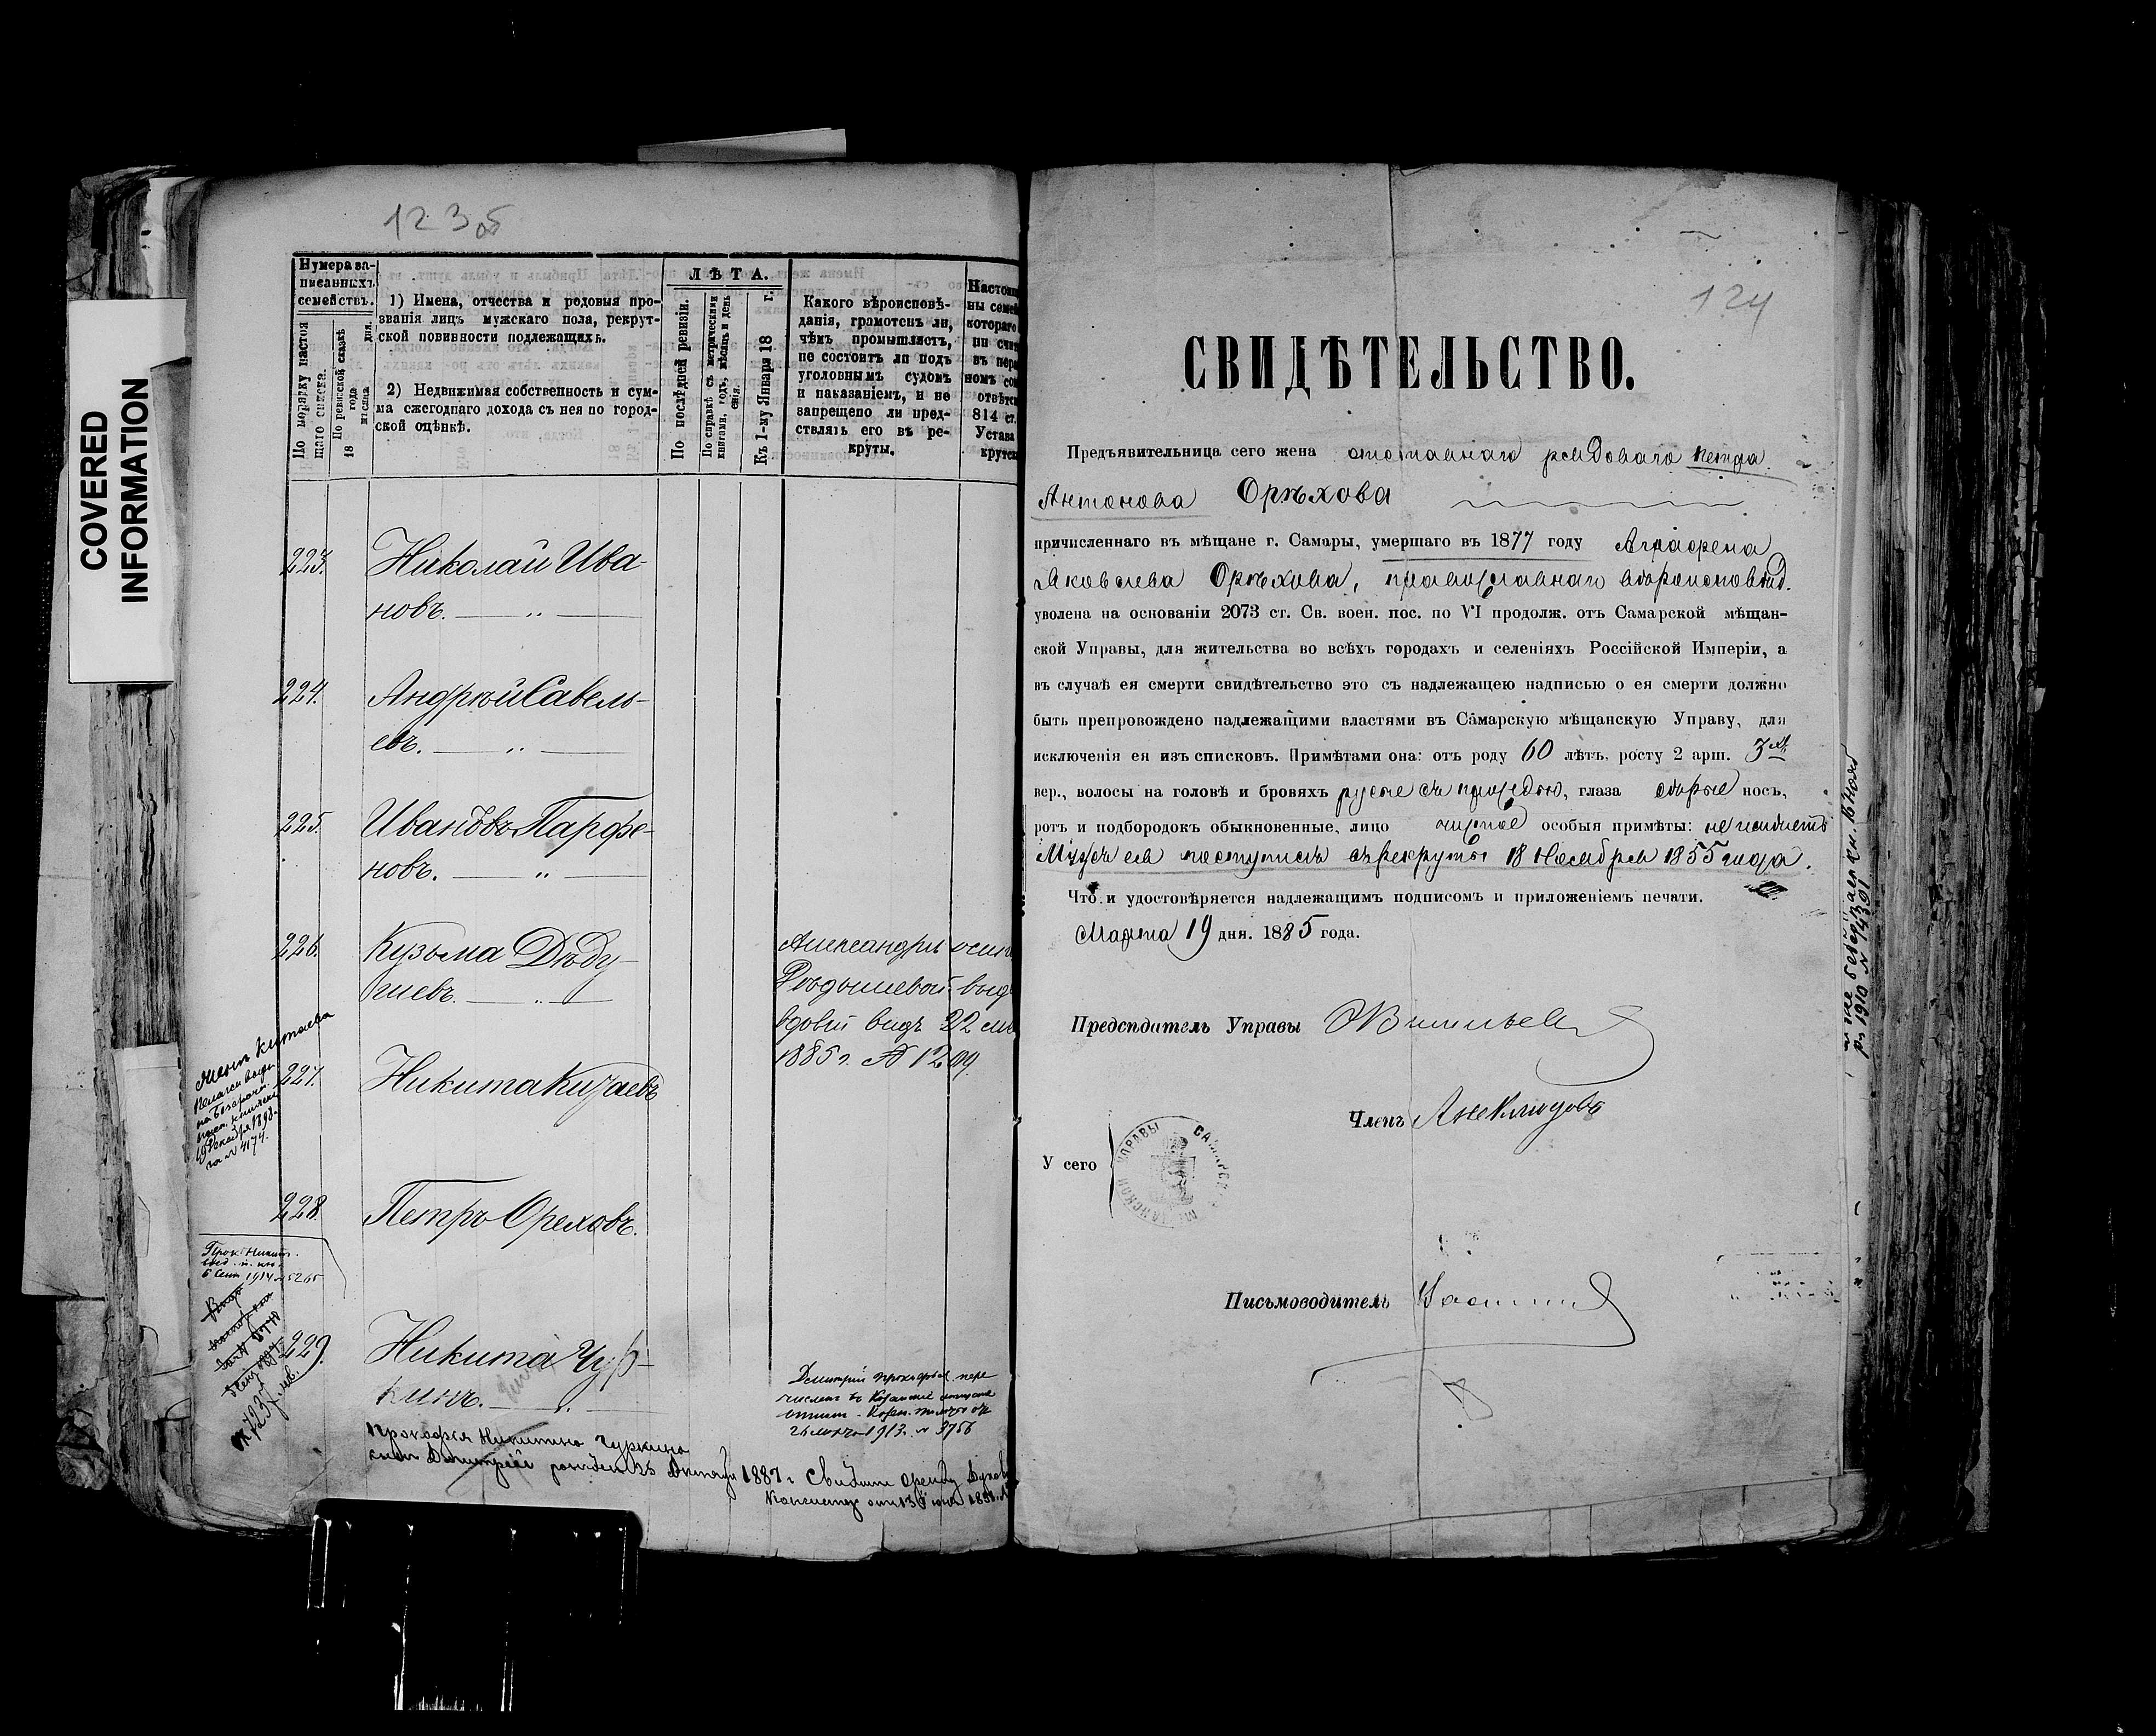 COVERED
INFORMATION
123 об
Нумера за-
писанныхъ
семействъ.
По порядку настоя
щаго списка.
По ревизской сказкѣ
18 года
мѣсяца дня.
1) Имена, отчества и родовыя про-
званія лицъ мужскаго пола, рекрут-
ской повивности подлежащихъ.
2) Недвижимая собственность и сум-
ма ежегоднаго дохода съ нея по город-
ской оцѣнкѣ.
ЛѢТА.
По послѣдней ревизіи.
По справкѣ съ метрическими
книгами, годъ, мѣсяцъ и день
Къ 1-му Января 18 г.
Какого вѣроисповѣ-
данія, грамотенъ ли,
чѣмъ промышляетъ,
не состоитъ ли подъ
уголовнымъ судомъ
и наказаніемъ, и не
запрещено ли пред-
ствлять его въ ре-
круты.
Настоящ
ны семе
котораго
ни счит
въ пера
номъ со
отвѣтс
814 ст.
Устава
крутск
223. Николай Ива-
новъ.
224. Андрѣй Савель-
евъ.
225. Ивановъ Парфе-
новъ.
226. Кузьма Дѣду-
шевъ.
Александрѣ
вдовій видъ 22
1885 г. № 1209
227. Никита Китаевъ
228. Петръ Ореховъ.
229. Никита Чур-
кинъ.
Женѣ Китаева
Пелагеи выдан
Декабря 1898 г.
за № 4174.
Прок. Никит.
5 Сент 1914 № 5265
Дмитрий Прокофьев пере
числен в Казанские
26 1913 г. № 3756
Прокофья Никитина Чуркина
сын Дмитрий рожден 25 Октября 1887 г
124
СВИДѢТЕЛЬСТВО.
Предъявительница сего жена отставнаго рядоваго Петра
Антонова Орѣхова
причисленнаго въ мѣщане г. Самары, умершаго въ 1877 году Аграфена
Яковлева Орѣхова, православнаго вѣроисповѣд.
уволена на основаніи 2073 ст. Св. воен. пос. по VI продолж. отъ Самарской мѣщан-
ской Управы, для жительства во всѣхъ городахъ и селеніяхъ Россійской Имперіи, а
въ случаѣ ея смерти свидѣтельство это съ надлежащею надписью о ея смерти должно
быть препровождено надлежащими властями въ Самарскую мѣщанскую Управу, для
исключенія ея изъ списковъ. Примѣтами она: отъ роду 60 лѣтъ, росту 2 арш. 3хъ
вер., волосы на головѣ и бровяхъ русые съ просѣдью, глаза сѣрые носъ,
ротъ и подбородокъ обыкновенные, лицо чистое особыя примѣты: не имѣетъ
Мужъ ея поступилъ въ рекруты 18 Ноября 1855 года.
Что и удостовѣряется надлежащимъ подписомъ и приложеніемъ печати.
Марта 19 дня. 1885 года.
Предсѣдатель Управы
Членъ А Неклюдовъ
У сего
САМАРСКОЙ МѢЩАНСКОЙ УПРАВЫ
Письмоводитель
р. 1910 № 14391